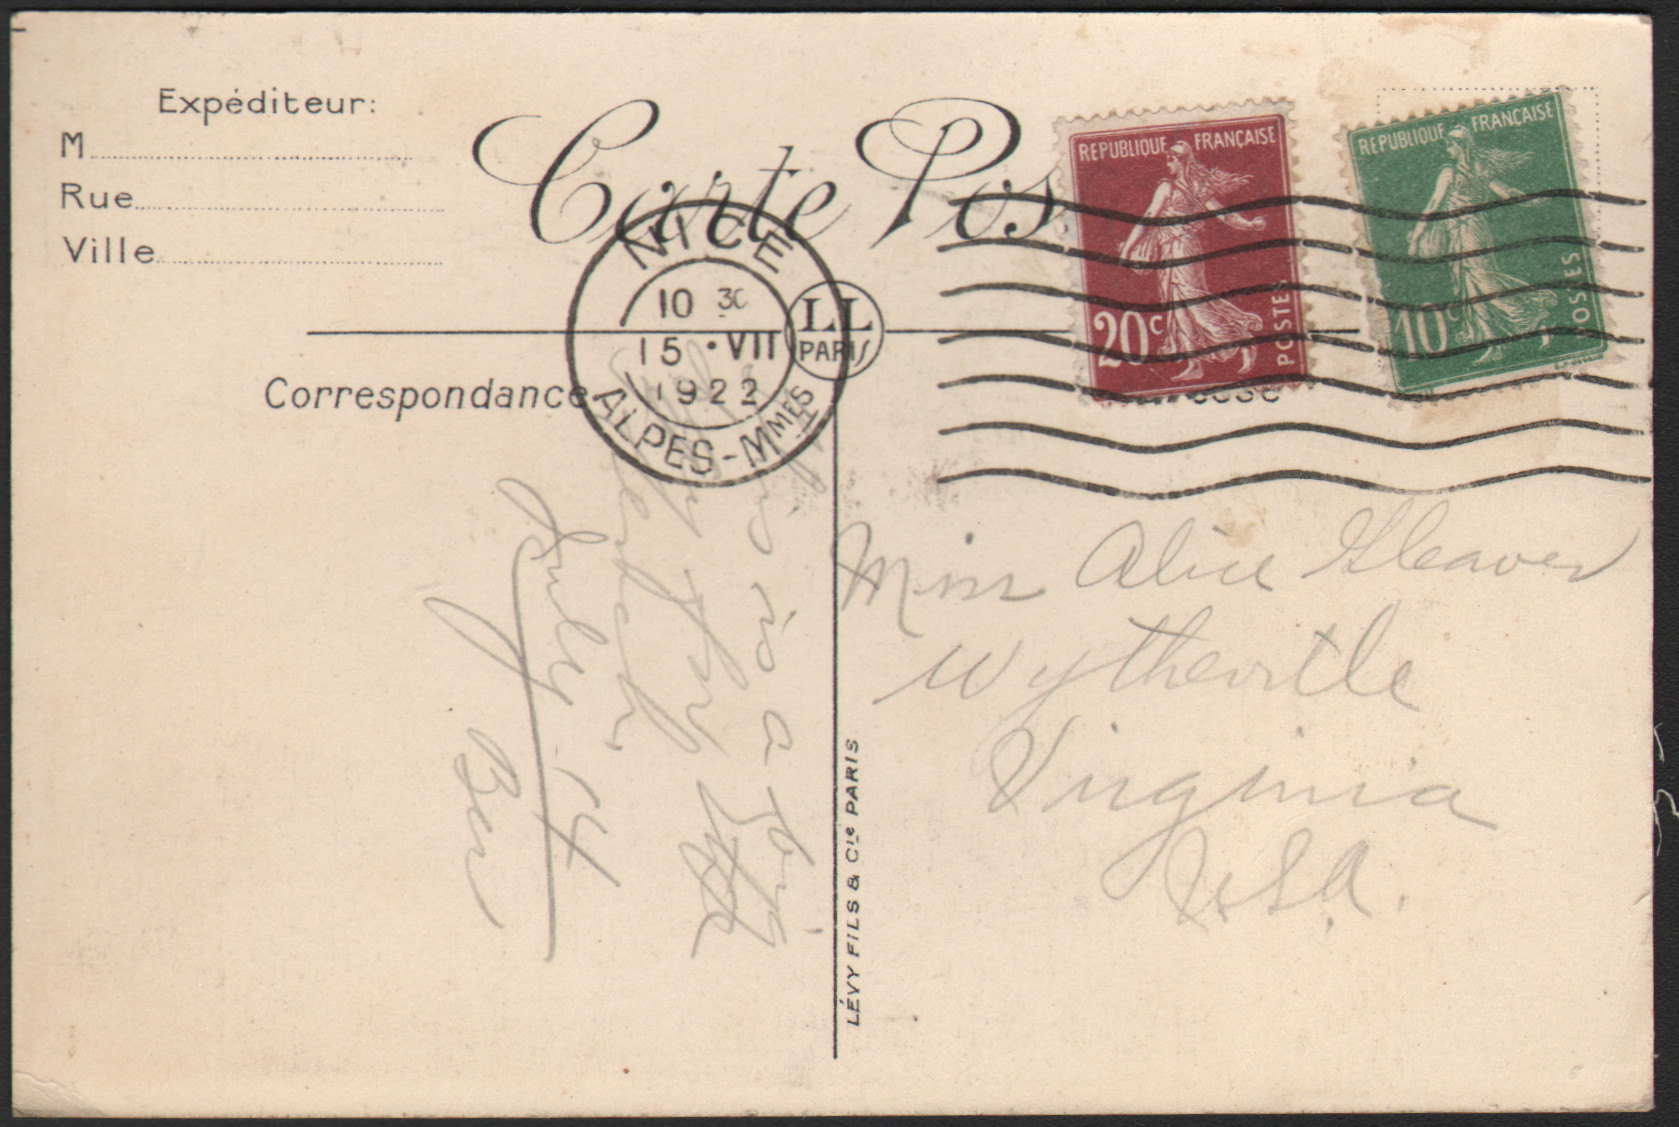 Expéditeur:
M
Rue
Ville
Carte Pos
REPUBLIQUE FRANÇAISE
20c
POSTES
REPUBLIQUE FRANÇAISE
10c
POSTES
NICE
10 30
15 • VII
1922
ALPES-MMES
LL
PARIS
Correspondance
is a
July 14
Ben
LÉVY FILS & Cie PARIS
Miss Alice Cleaver
Wytheville
Virginia
USA.